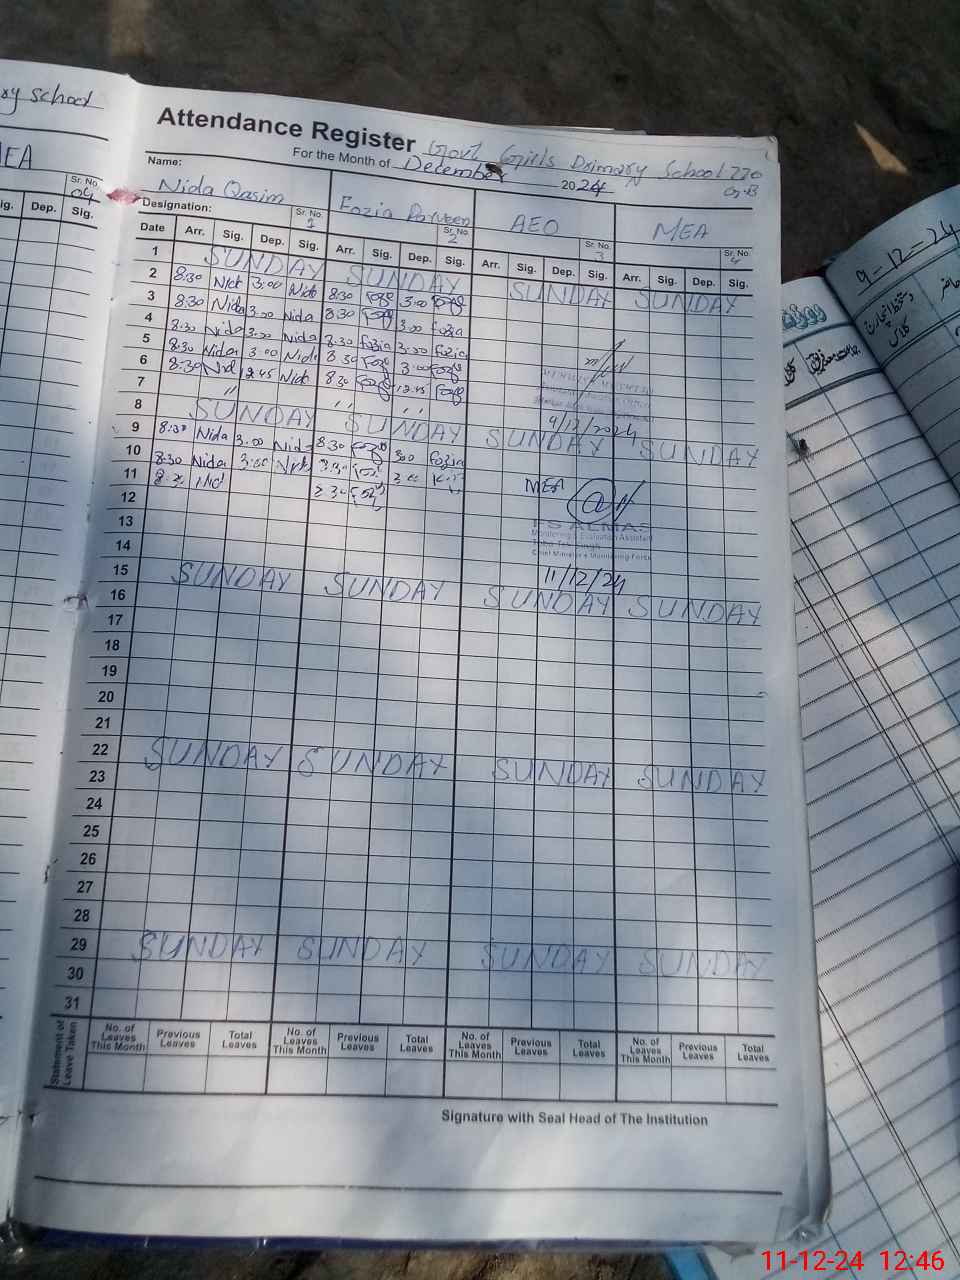 ry school
MEA
Sr. No.
04
ig. Dep. Sig.
Attendance Register Govt Girls Primary School 220
For the Month of December 2024
G-B
Name: Nida Qasim Fozia Parveen AEO MEA
Designation: Sr. No. 1 Sr. No. 2 Sr. No. 3 Sr. No. 4
Date Arr. Sig. Dep. Sig. Arr. Sig. Dep. Sig. Arr. Sig. Dep. Sig. Arr. Sig. Dep. Sig.
1 SUNDAY SUNDAY SUNDAY SUNDAY
2 8:30 Nida 3:00 Nida 8:30 3:00
3 8:30 Nida 3:00 Nida 8:30 3:00 Fozia
4 8:30 Nida 3:00 Nida 8:30 Fozia 3:00 Fozia
5 8:30 Nida 3:00 Nida 8:30 3:00
6 8:30 Nid 12:45 Nida 8:30 12:45
7 " " "
4/12/2024
8 SUNDAY SUNDAY SUNDAY SUNDAY
9 8:30 Nida 3:00 Nida 8:30 Fozia 3:00 Fozia
10 8:30 Nida 3:00 Nida 8:30
11 8:30 8:30 MEA
12
13
Monitoring & Evaluation Assistant
14
Chief Minister's Monitoring Force
11/12/24
15 SUNDAY SUNDAY SUNDAY SUNDAY
16
17
18
19
20
21
22 SUNDAY SUNDAY SUNDAY SUNDAY
23
24
25
26
27
28
29 SUNDAY SUNDAY SUNDAY SUNDAY
30
31
Statement of Leave Taken
No. of Leaves This Month Previous Leaves Total Leaves No. of Leaves This Month Previous Leaves Total Leaves No. of Leaves This Month Previous Leaves Total Leaves No. of Leaves This Month Previous Leaves Total Leaves
Signature with Seal Head of The Institution
9-12-24
حاضر
11-12-24 12:46